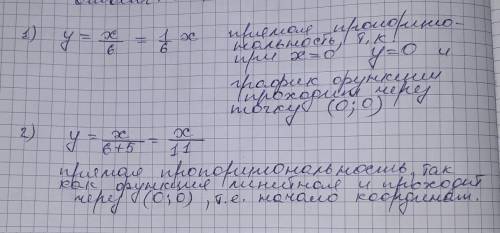 1) y = x/6 = 1/6 x прямая пропорцио-
нальность, т.к
при x=0 y=0 и
график функции
проходит через
точку (0;0)
2) y = x/6+5 = x/11
прямая пропорциональность, так
как функция линейная и проходит
через (0;0), т.е. начало координат.